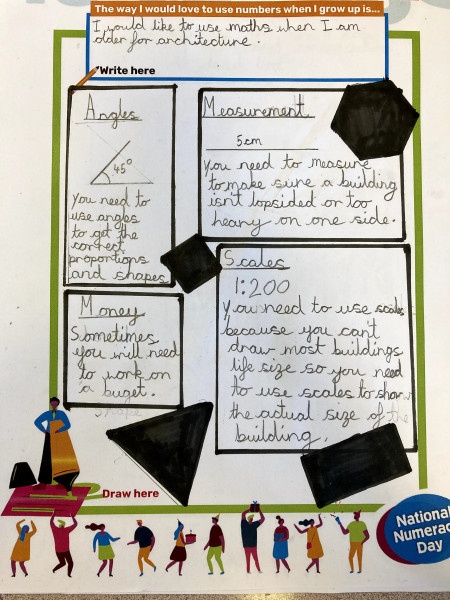 The way I would love to use numbers when I grow up is...
I would like to use maths when I am
older for architecture.
Write here
Angles
45°
you need to
use angles
to get the
correct
proportions
and shapes
Measurement
5cm
you need to measure
to make sure a building
isn't lopsided or too
heavy on one side.
Scales
1:200
you need to use scales
because you can't
draw most buildings
life size so you need
to use scales to show
the actual size of the
building.
Money
Sometimes
you will need
to work on
a buget.
shape
Draw here
National
Numeracy
Day